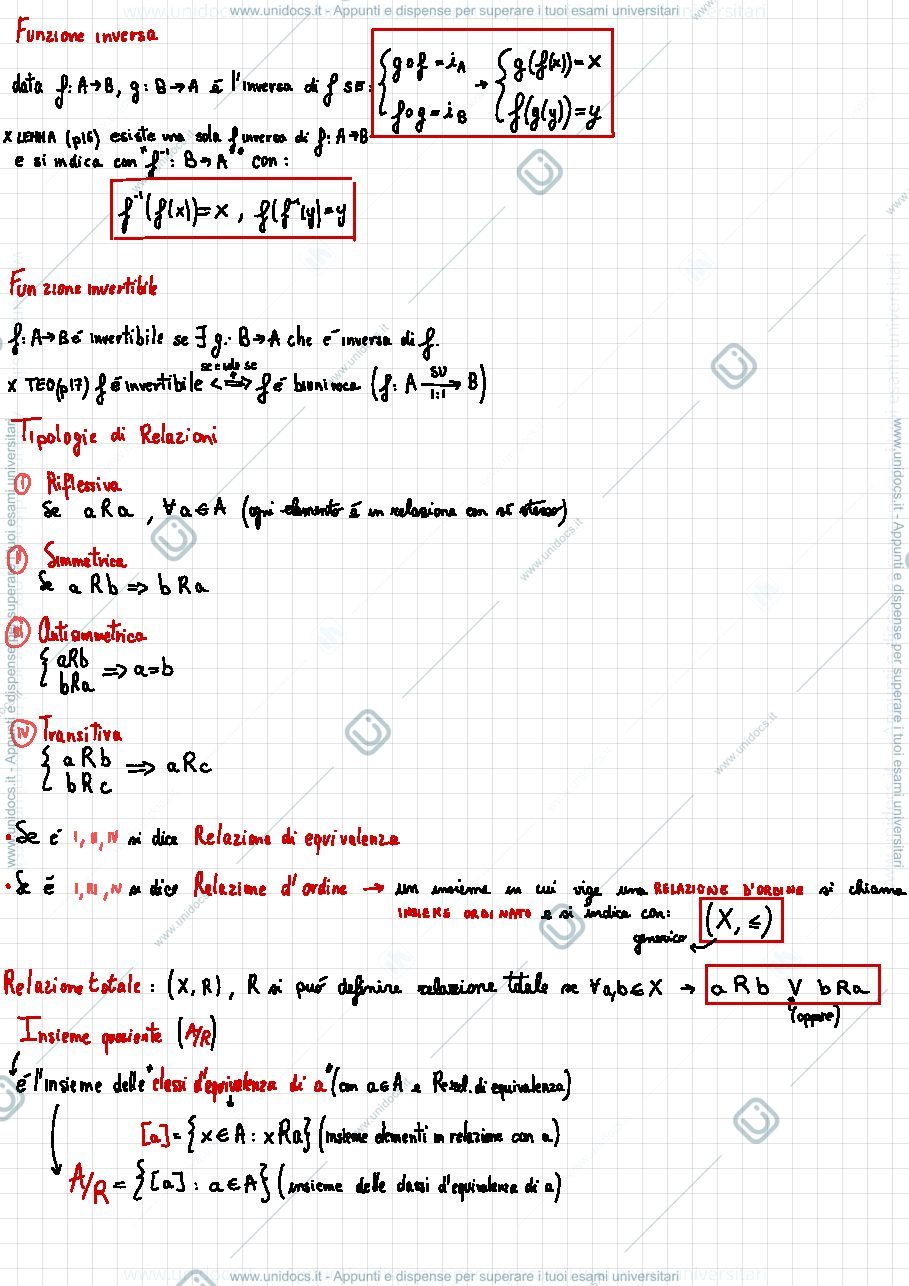 www.unidocs.it - Appunti e dispense per superare i tuoi esami universitari
Funzione inversa
data f: A→B, g: B→A è l'inversa di f SE: { g∘f = i_A → { g(f(x))=x
f∘g = i_B f(g(y))=y
X LEMMA (p16) esiste una sola f inversa di f: A→B
e si indica con "f⁻¹: B→A" con:
f⁻¹(f(x))=x , f(f⁻¹(y)=y
Funzione invertibile
f: A→B è invertibile se ∃ g: B→A che é inversa di f.
se e solo se
x TEO(p17) f è invertibile <=> f è biunivoca (f: A →SU 1:1 B)
Tipologie di Relazioni
I Riflessiva
Se aRa , ∀a∈A (ogni elemento è in relazione con sé stesso)
II Simmetrica
Se aRb => bRa
III Antisimmetrica
{ aRb
bRa => a=b
IV Transitiva
{ aRb
bRc => aRc
• Se é I, II, IV si dice Relazione di equivalenza
• Se é I, III, IV si dice Relazione d'ordine → un insieme in cui vige una RELAZIONE D'ORDINE si chiama
INSIEME ORDINATO e si indica con: (X, ≤)
generico
Relazione totale : (X,R), R si può definire relazione totale se ∀a,b∈X → aRb ∨ bRa
(oppure)
Insieme quoziente (A/R)
é l'insieme delle "classi d'equivalenza di a" (con a∈A e R rel. di equivalenza)
[a]={x∈A: xRa} (insieme elementi in relazione con a)
A/R = {[a] : a∈A} (insieme delle classi d'equivalenza di a)
www.unidocs.it - Appunti e dispense per superare i tuoi esami universitari